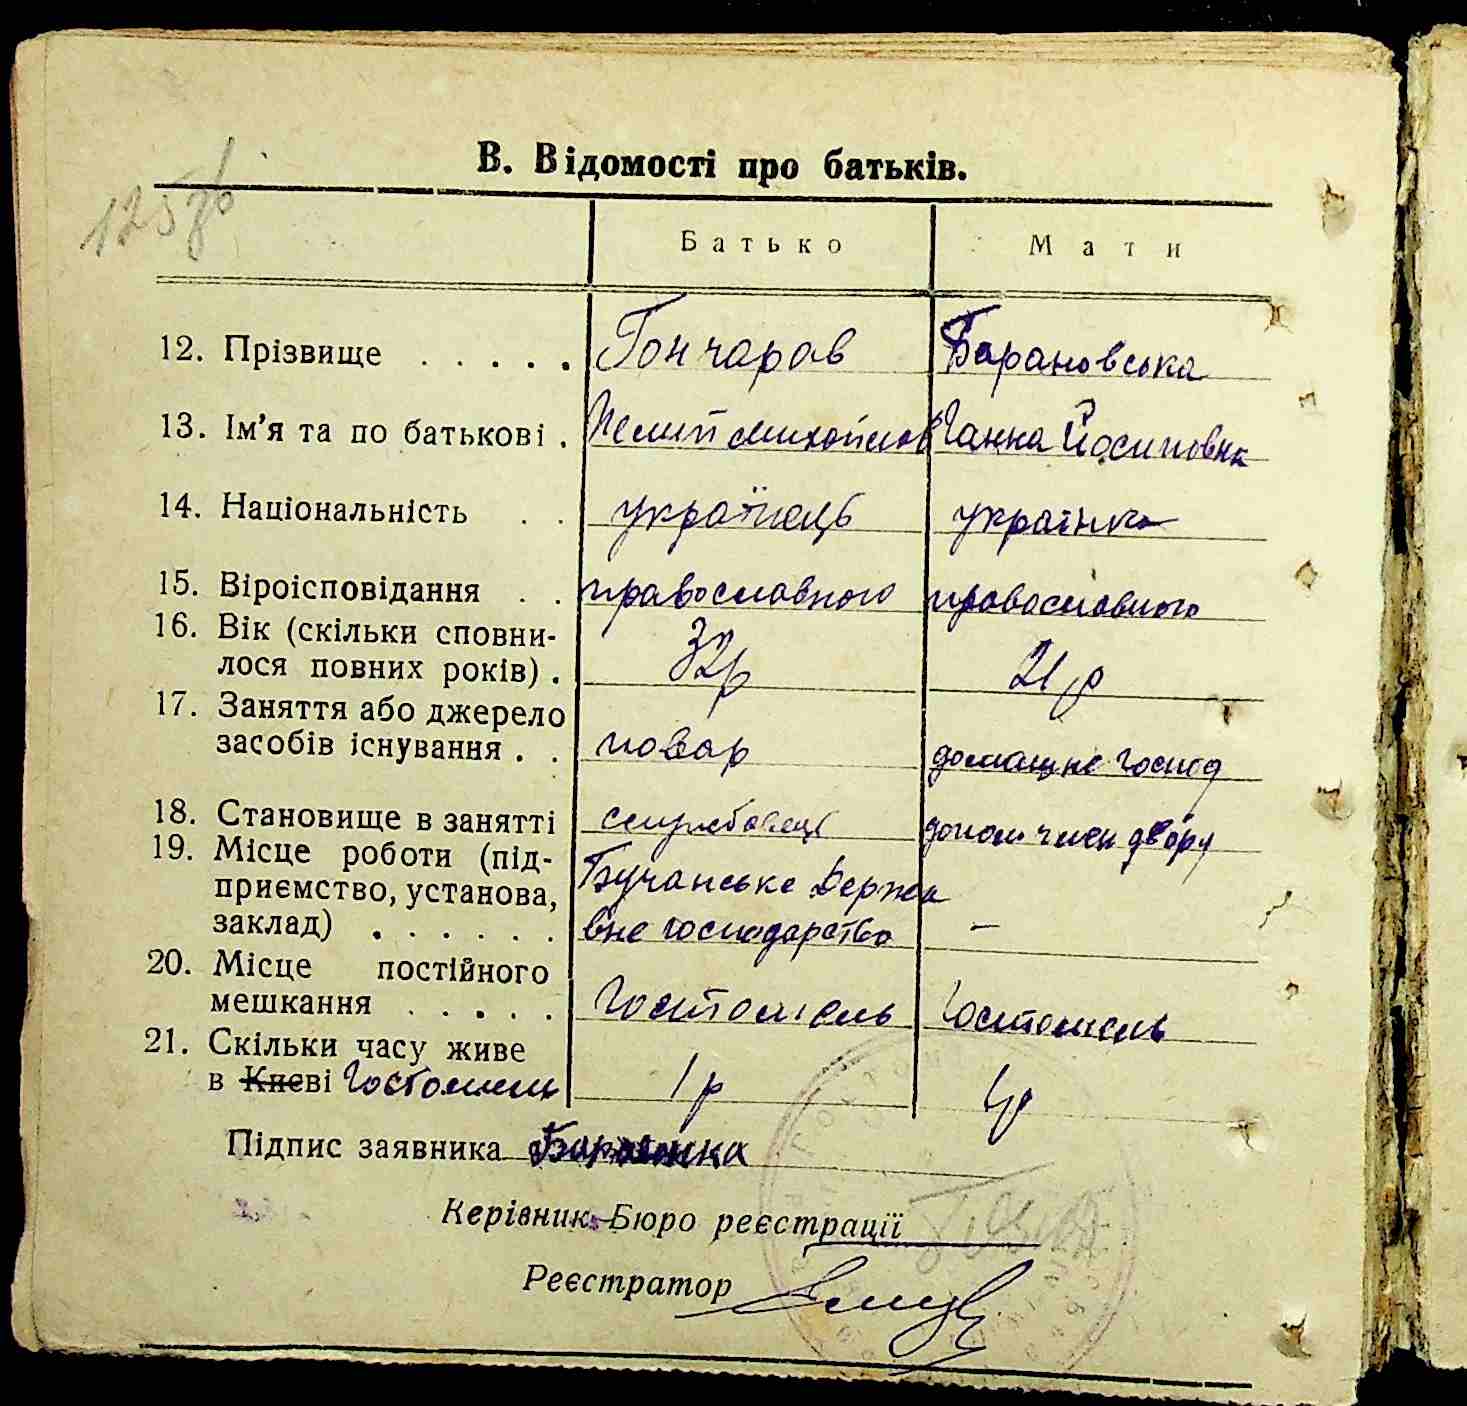 В. Відомості про батьків.
Батько Мати
12. Прізвище . . . . . Гончаров Барановська
13. Ім'я та по батькові . Михайлов Ганна Йосиповна
14. Національність . . українець українка
15. Віроісповідання . . православного православного
16. Вік (скільки сповни-
лося повних років) . 32р 21 р
17. Заняття або джерело
засобів існування . . повар домашнє господ
18. Становище в занятті службовець допом член двору
19. Місце роботи (під-
приємство, установа, Бучанське Держа
заклад) . . . . . . вне господарство –
20. Місце постійного
мешкання . . . . . Гостомель Гостомель
21. Скільки часу живе
в Києві Гостомели 1 р
Підпис заявника
Керівник Бюро реєстрації
Реєстратор